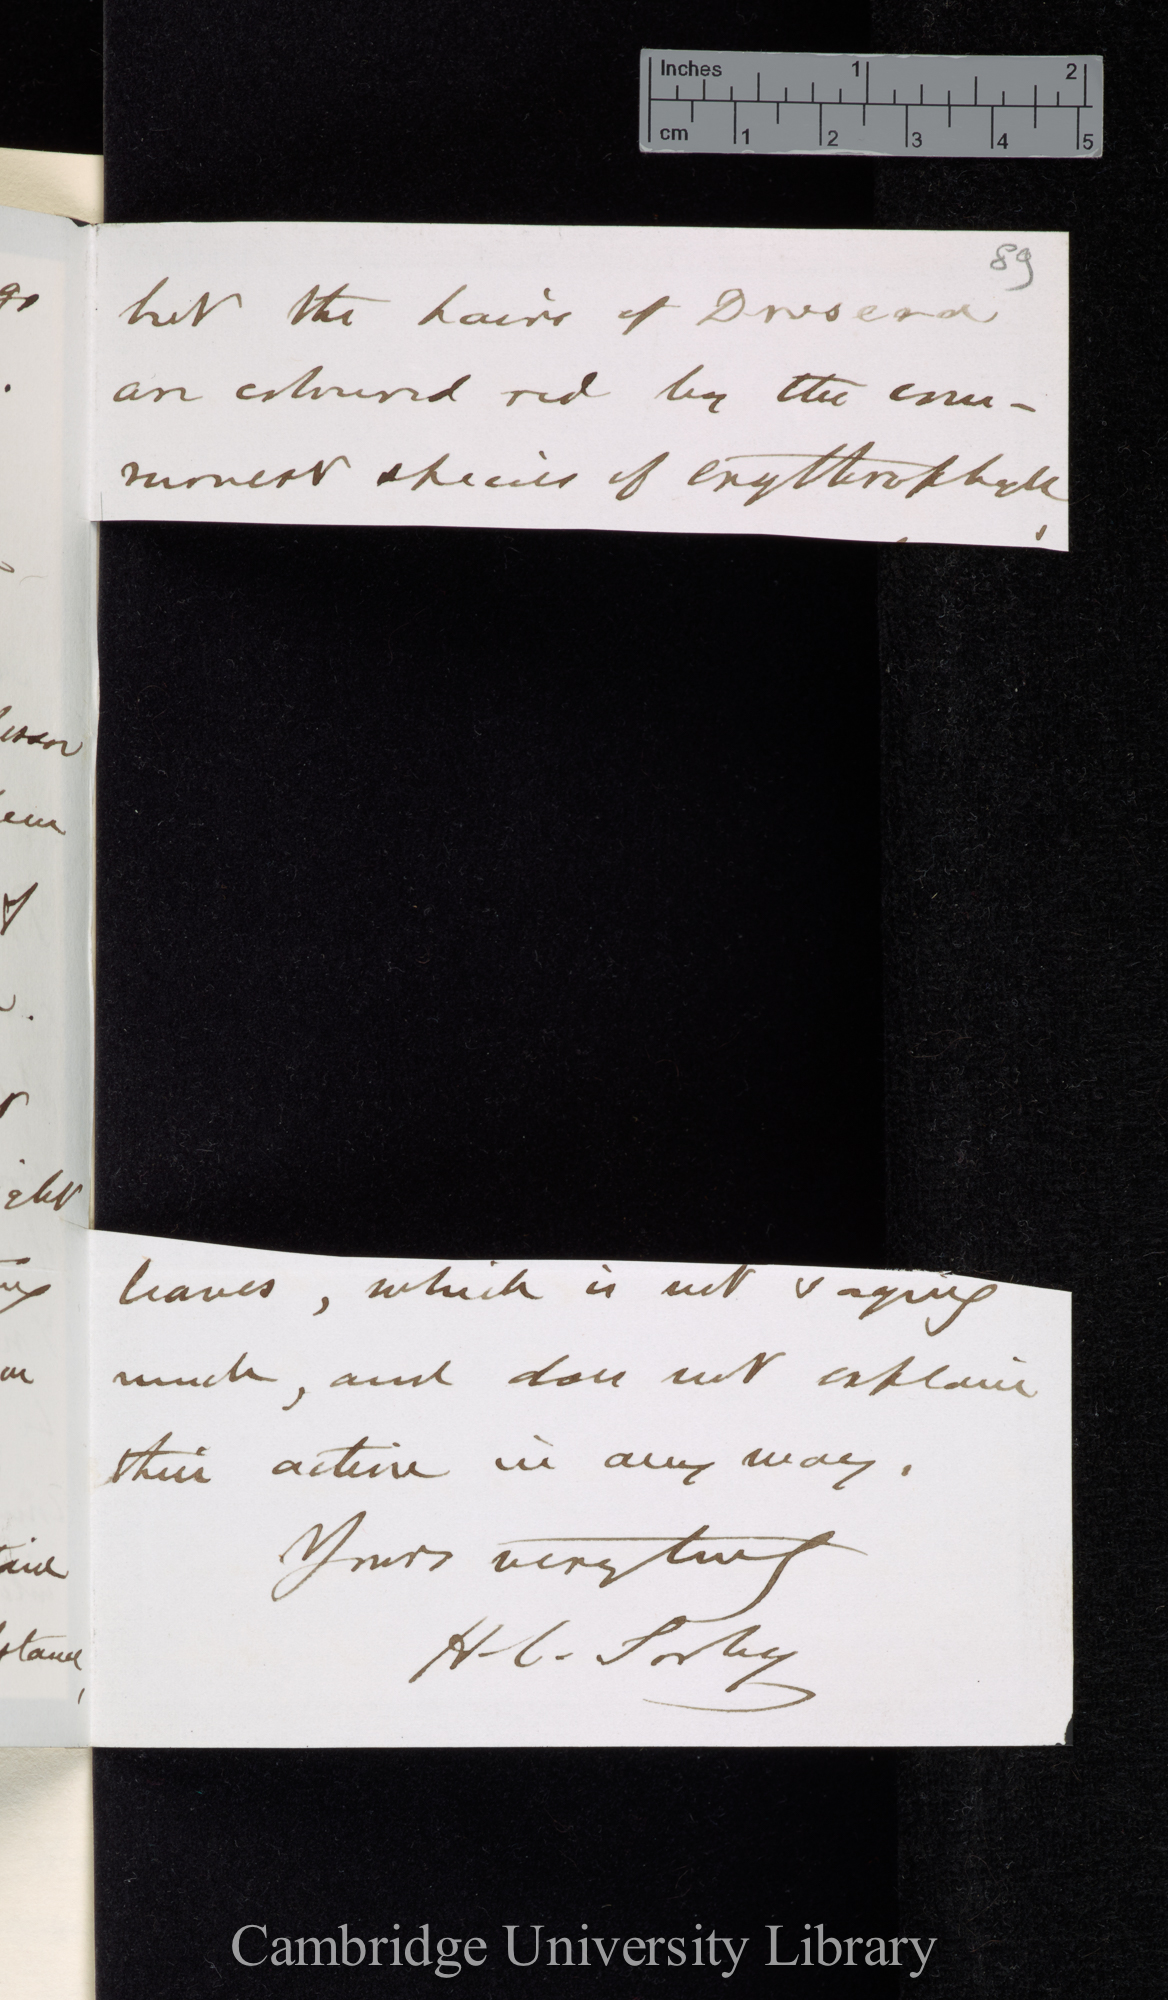 Inches 1 2
cm 1 2 3 4 5
89
but the hairs of Drosera
are coloured red by the com-
monest species of erythrophyll
leaves, which is not saying
much, and does not explain
their action in any way.
Yours very truly
H. C. Sorby
Cambridge University Library